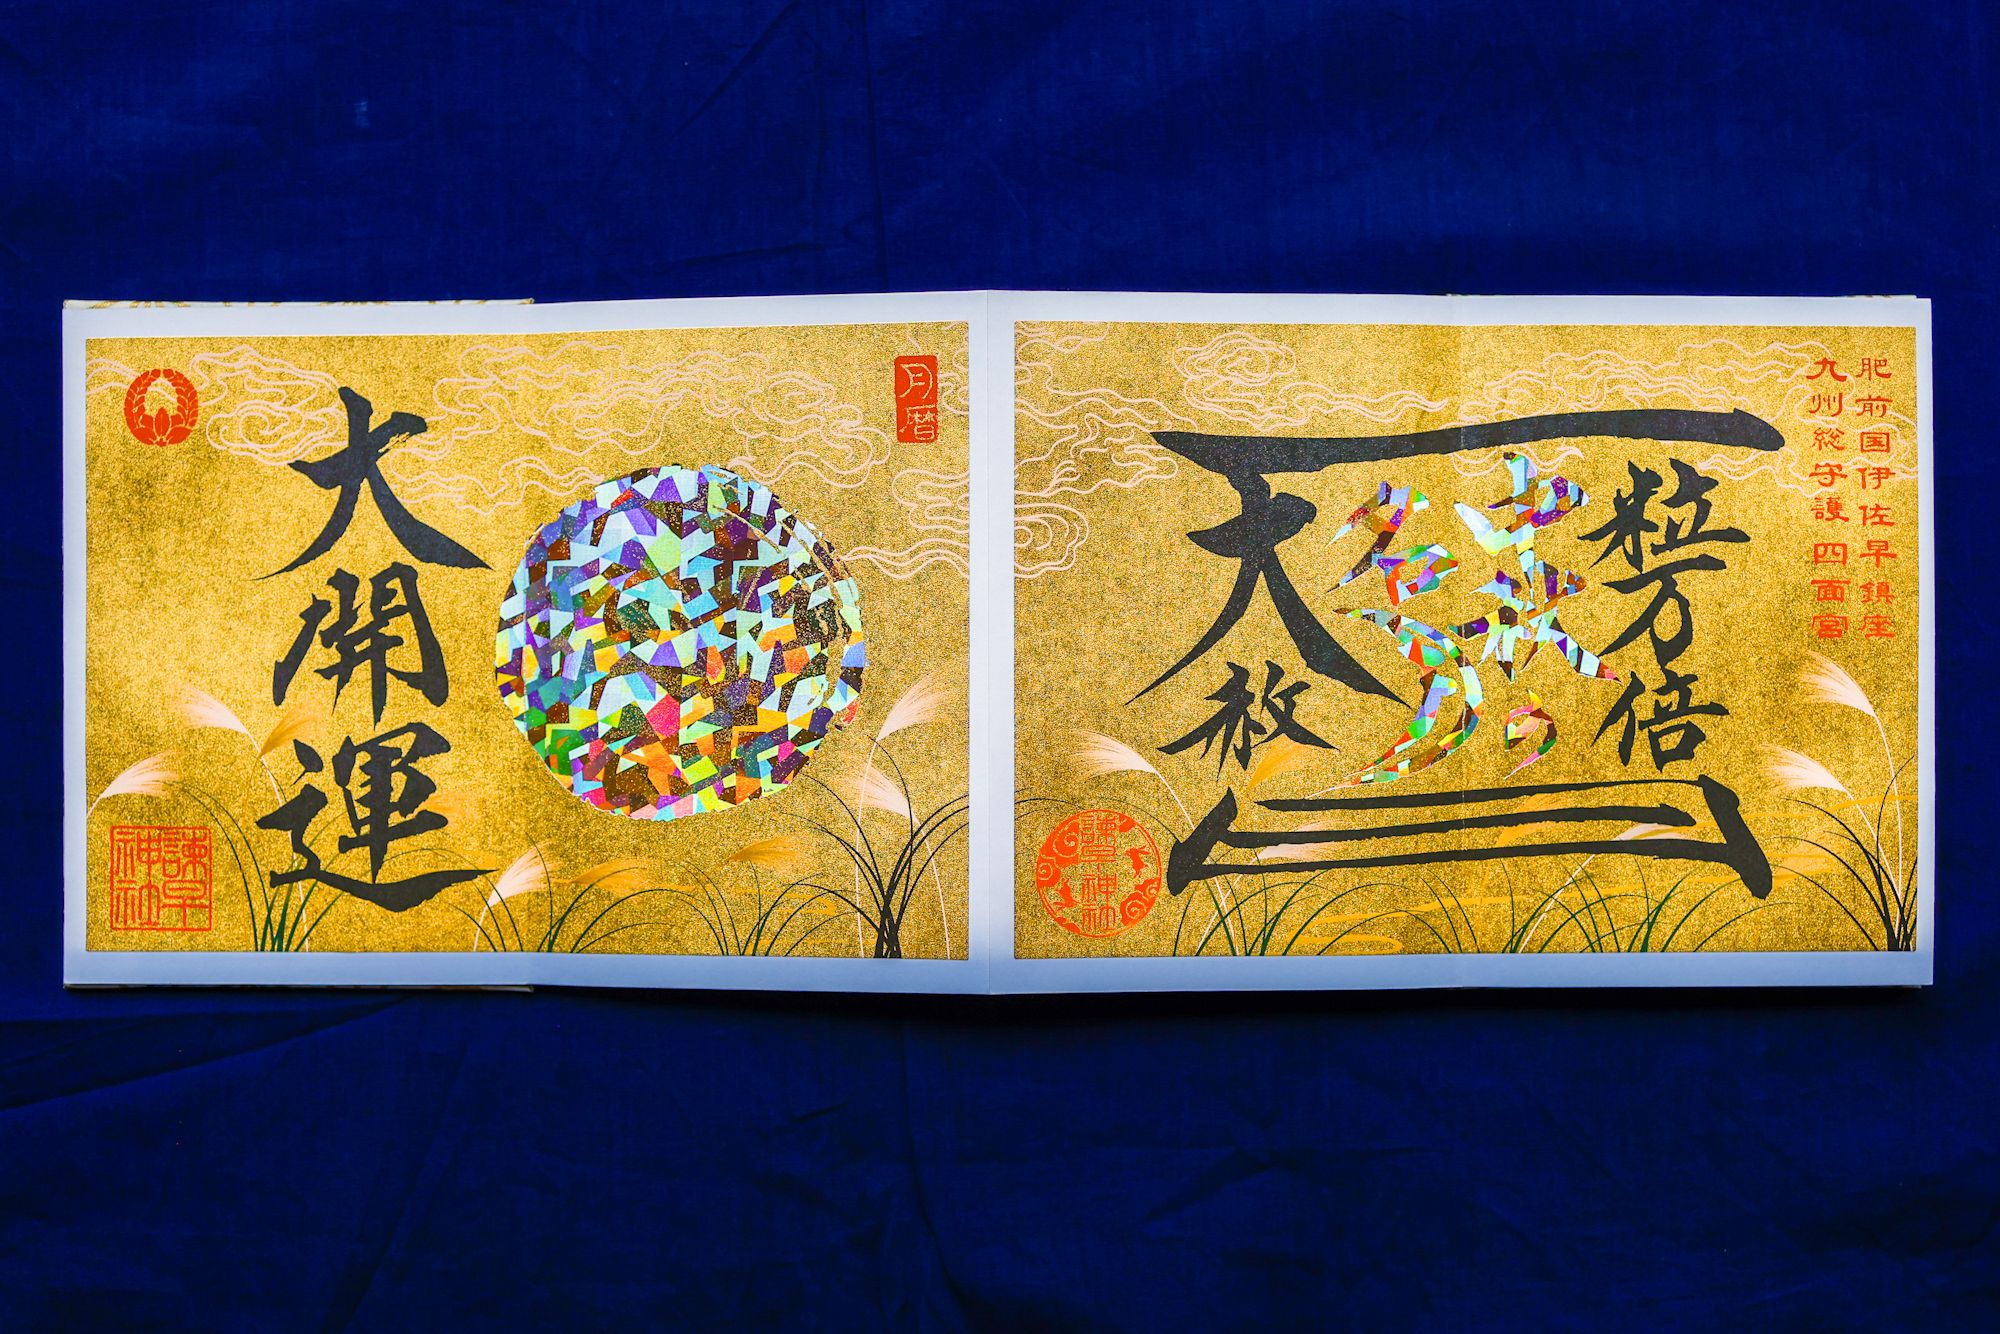 肥前国伊佐早鎮座
九州総守護 四面宮
一粒万倍
中秋の
名月
天赦
日
諫早神社
月暦
大開運
諫早神社